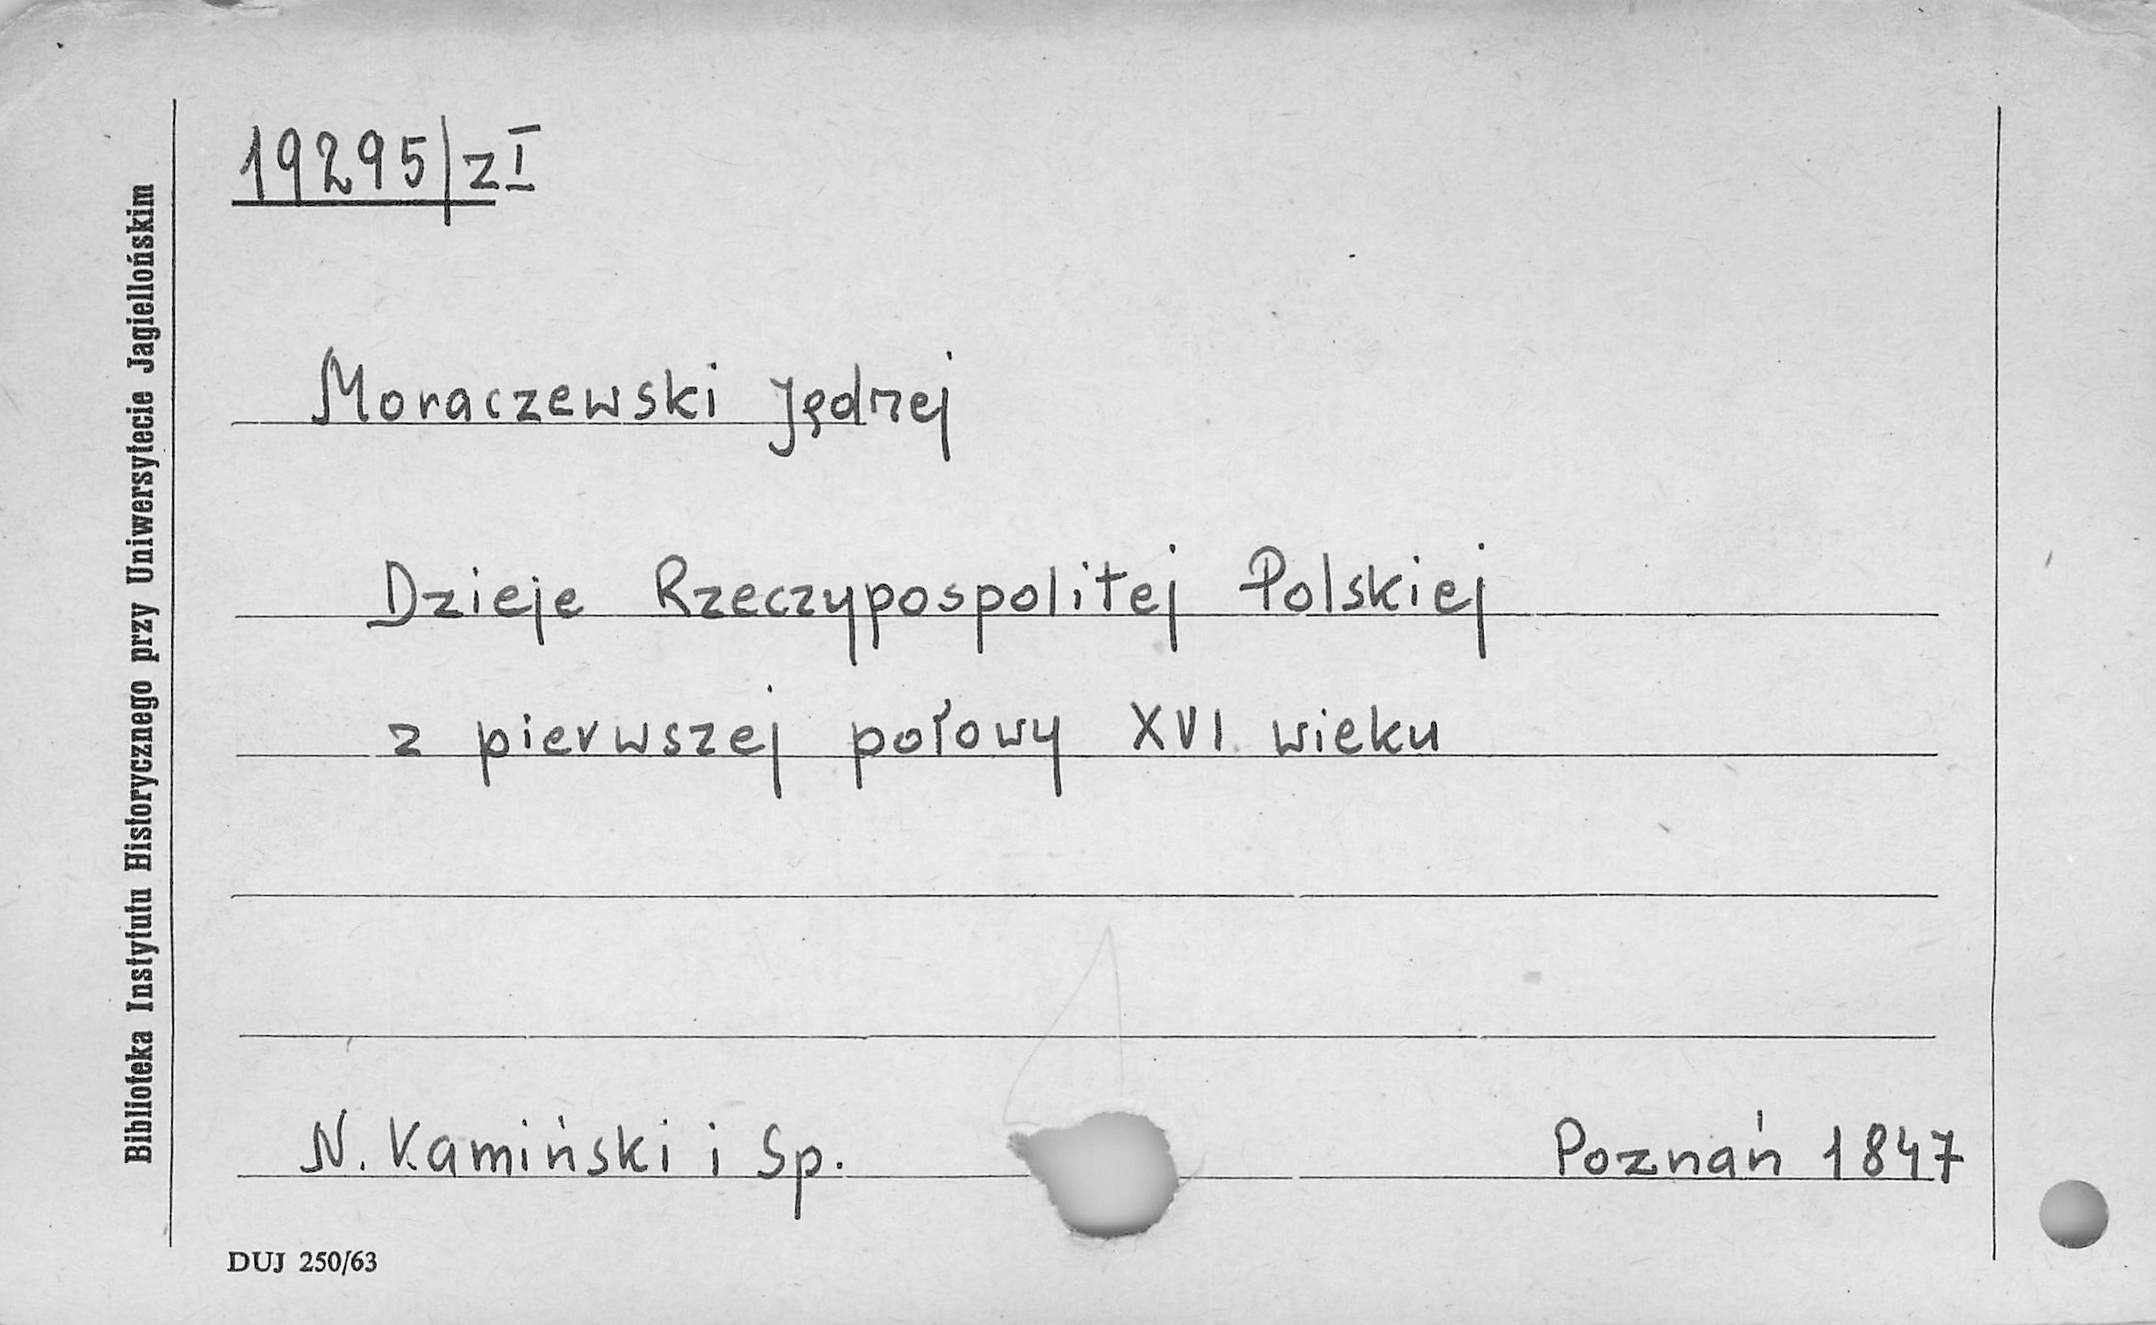 19295/z I
Moraczewski Jędrzej
Dzieje Rzeczypospolitej Polskiej
z pierwszej połowy XVI wieku
N. Kamiński i Sp. Poznań 1847
DUJ 250/63
Biblioteka Instytutu Historycznego przy Uniwersytecie Jagiellońskim